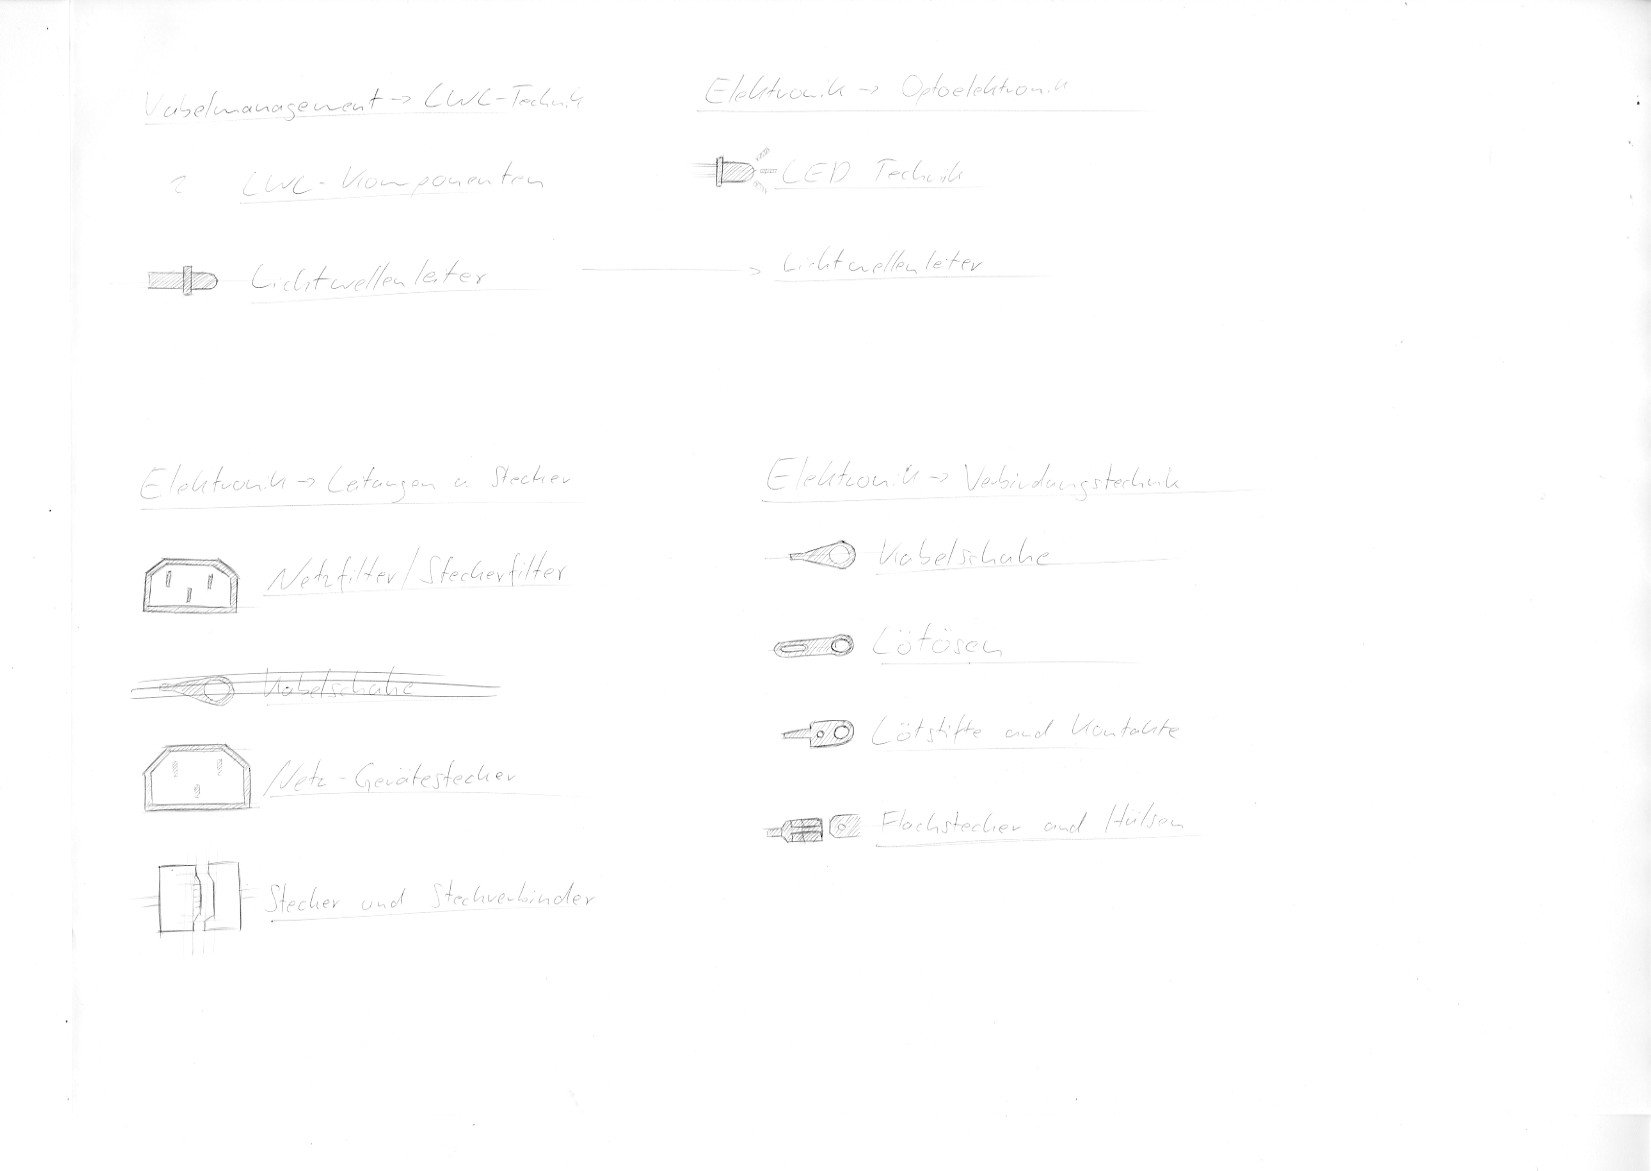 Kabelmanagement → LWL-Technik
? LWL-Komponenten
Lichtwellenleiter →
Elektronik → Optoelektronik
LED Technik
Lichtwellenleiter
Elektronik → Leitungen u Stecker
Netzfilter/Steckerfilter
Kabelschuhe
Netz-Gerätestecker
Stecker und Steckverbinder
Elektronik → Verbindungstechnik
Kabelschuhe
Lötösen
Lötstifte und Kontakte
Flachstecker und Hülsen